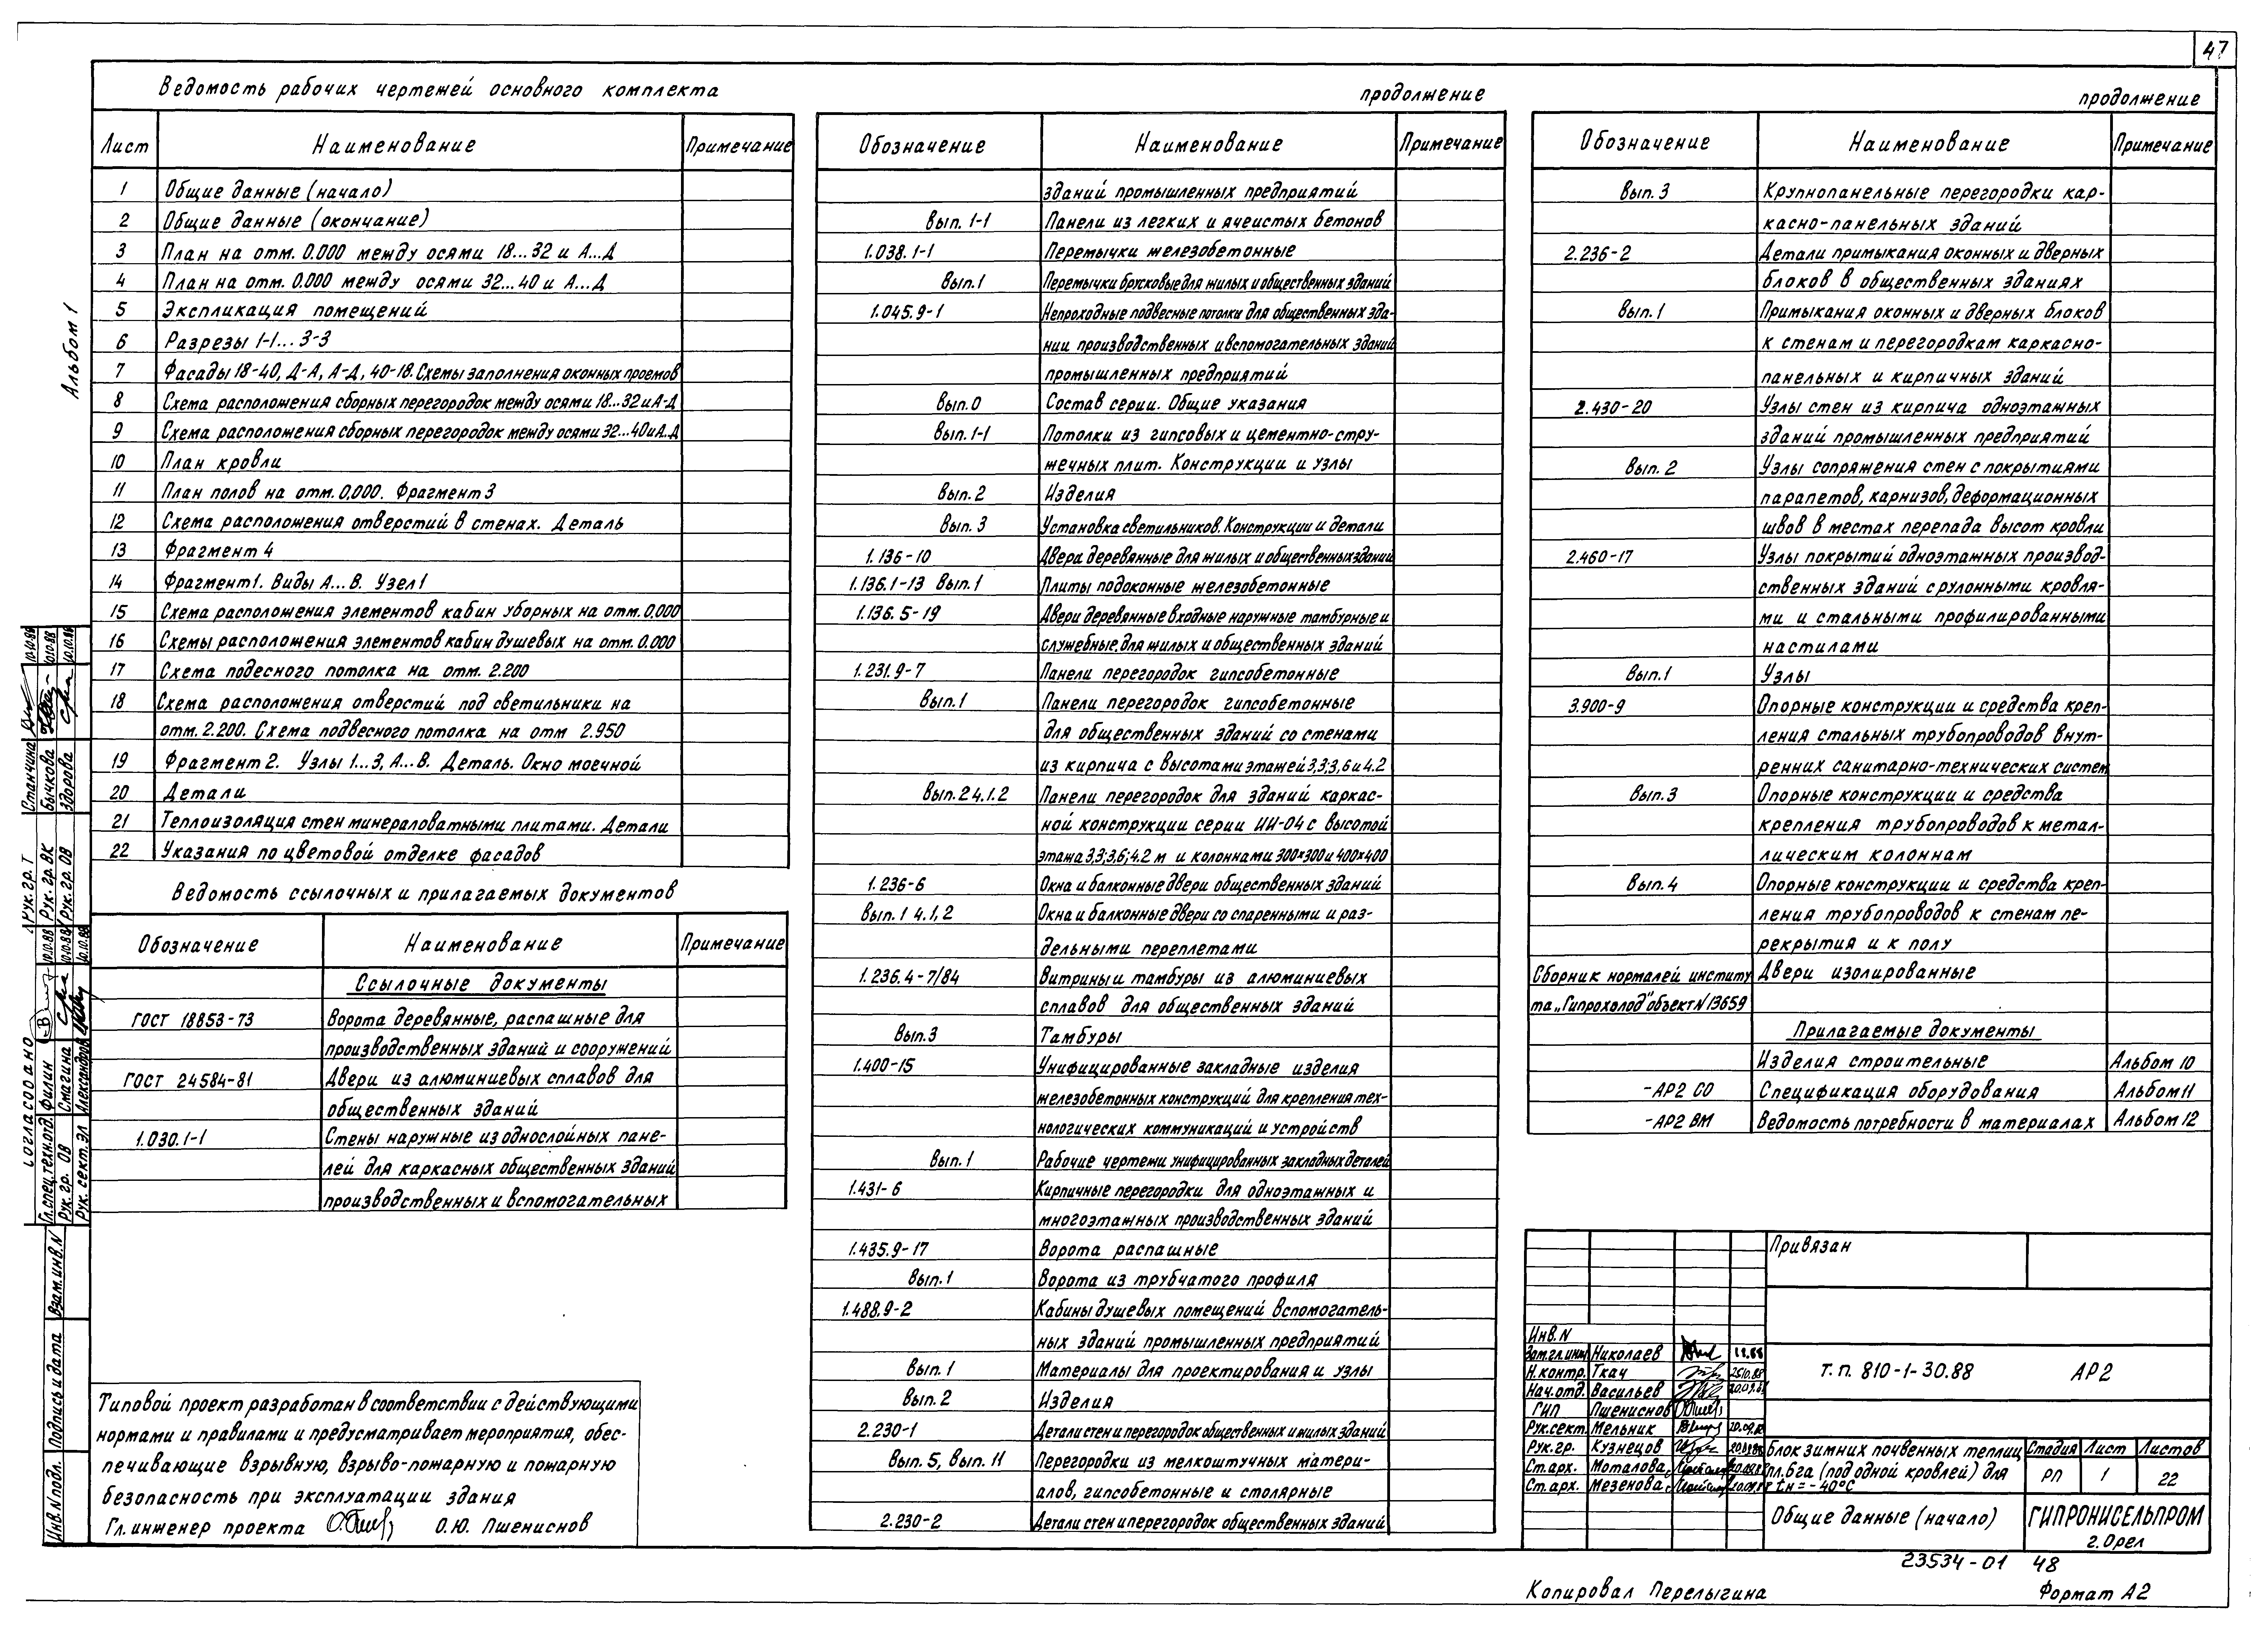 47
Ведомость рабочих чертежей основного комплекта
Лист Наименование Примечание
1 Общие данные (начало)
2 Общие данные (окончание)
3 План на отм. 0.000 между осями 18...32 и А...Д
4 План на отм. 0.000 между осями 32...40 и А...Д
5 Экспликация помещений
6 Разрезы 1-1... 3-3
7 Фасады 18-40, Д-А, А-Д, 40-18. Схемы заполнения оконных проемов
8 Схема расположения сборных перегородок между осями 18...32 и А-Д
9 Схема расположения сборных перегородок между осями 32...40 и А...Д
10 План кровли
11 План полов на отм. 0.000. Фрагмент 3
12 Схема расположения отверстий в стенах. Деталь
13 Фрагмент 4
14 Фрагмент 1. Виды А...В. Узел 1
15 Схема расположения элементов кабин уборных на отм. 0.000
16 Схемы расположения элементов кабин душевых на отм. 0.000
17 Схема подесного потолка на отм. 2.200
18 Схема расположения отверстий под светильники на
отм. 2.200. Схема подвесного потолка на отм 2.950
19 Фрагмент 2. Узлы 1...3, А...В. Деталь. Окно моечной
20 Детали
21 Теплоизоляция стен минераловатными плитами. Детали
22 Указания по цветовой отделке фасадов
Ведомость ссылочных и прилагаемых документов
Обозначение Наименование Примечание
Ссылочные документы
ГОСТ 18853-73 Ворота деревянные, распашные для
производственных зданий и сооружений
ГОСТ 24584-81 Двери из алюминиевых сплавов для
общественных зданий
1.030.1-1 Стены наружные из однослойных пане-
лей для каркасных общественных зданий
производственных и вспомогательных
Типовой проект разработан в соответствии с действующими
нормами и правилами и предусматривает мероприятия, обес-
печивающие взрывную, взрыво-пожарную и пожарную
безопасность при эксплуатации здания
Гл. инженер проекта О.Ю. Пшениснов
продолжение
Обозначение Наименование Примечание
зданий промышленных предприятий
Вып. 1-1 Панели из легких и ячеистых бетонов
1.038.1-1 Перемычки железобетонные
Вып. 1 Перемычки брусковые для жилых и общественных зданий
1.045.9-1 Непроходные подвесные потолки для общественных зда-
нии производственных и вспомогательных зданий
промышленных предприятий
Вып. 0 Состав серии. Общие указания
Вып. 1-1 Потолки из гипсовых и цементно-стру-
жечных плит. Конструкции и узлы
Вып. 2 Изделия
Вып. 3 Установка светильников. Конструкции и детали
1.136-10 Двера деревянные для жилых и общественных зданий
1.136.1-13 Вып. 1 Плиты подоконные железобетонные
1.136.5-19 Двери деревянные входные наружные тамбурные и
служебные для жилых и общественных зданий
1.231.9-7 Панели перегородок гипсобетонные
Вып. 1 Панели перегородок гипсобетонные
для общественных зданий со стенами
из кирпича с высотами этажей 3,3; 3,6 и 4.2
Вып. 2 4.1.2 Панели перегородок для зданий каркас-
ной конструкции серии ИИ-04 с высотой
этажа 3,3; 3,6; 4.2 м и колоннами 300×300 и 400×400
1.236-6 Окна и балконные двери общественных зданий
Вып. 1 4.1,2 Окна и балконные двери со спаренными и раз-
дельными переплетами
1.236.4-7/84 Витрины и тамбуры из алюминиевых
сплавов для общественных зданий
Вып. 3 Тамбуры
1.400-15 Унифицированные закладные изделия
железобетонных конструкций для крепления тех-
нологических коммуникаций и устройств
Вып. 1 Рабочие чертежи унифицированных закладных деталей
1.431-6 Кирпичные перегородки для одноэтажных и
многоэтажных производственных зданий
1.435.9-17 Ворота распашные
Вып. 1 Ворота из трубчатого профиля
1.488.9-2 Кабины душевых помещений вспомогатель-
ных зданий промышленных предприятий
Вып. 1 Материалы для проектирования и узлы
Вып. 2 Изделия
2.230-1 Детали стен и перегородок общественных и жилых зданий
Вып. 5, Вып. 11 Перегородки из мелкоштучных матери-
алов, гипсобетонные и столярные
2.230-2 Детали стен и перегородок общественных зданий
продолжение
Обозначение Наименование Примечание
Вып. 3 Крупнопанельные перегородки кар-
касно-панельных зданий
2.236-2 Детали примыкания оконных и дверных
блоков в общественных зданиях
Вып. 1 Примыкания оконных и дверных блоков
к стенам и перегородкам каркасно-
панельных и кирпичных зданий
2.430-20 Узлы стен из кирпича одноэтажных
зданий промышленных предприятий
Вып. 2 Узлы сопряжения стен с покрытиями
парапетов, карнизов, деформационных
швов в местах перепада высот кровли
2.460-17 Узлы покрытий одноэтажных производ-
ственных зданий с рулонными кровля-
ми и стальными профилированными
настилами
Вып. 1 Узлы
3.900-9 Опорные конструкции и средства креп-
ления стальных трубопроводов внут-
ренних санитарно-технических систем
Вып. 3 Опорные конструкции и средства
крепления трубопроводов к метал-
лическим колоннам
Вып. 4 Опорные конструкции и средства креп-
ления трубопроводов к стенам пе-
рекрытия и к полу
Сборник нормалей институ Двери изолированные
та „Гипрохолод" объект N 13659
Прилагаемые документы
Изделия строительные Альбом 10
-АР2 СО Спецификация оборудования Альбом 11
-АР2 ВМ Ведомость потребности в материалах Альбом 12
Привязан
Инв. N
Зам.гл.инж Николаев
Н.контр. Ткач 25.10.88
Нач.отд. Васильев
ГИП Пшениснов
Рук.сект. Мельник
Рук.гр. Кузнецов
Ст.арх. Моталова
Ст.арх. Мезенова
Т.п. 810-1-30.88 АР2
Блок зимних почвенных теплиц
пл. 6га (под одной кровлей) для
tн = -40°С
Стадия Лист Листов
РП 1 22
Общие данные (начало)
ГИПРОНИСЕЛЬПРОМ
г. Орел
23534-01 48
Копировал Перелыгина Формат А2
Альбом 1
Согласовано
Гл.спец.техн.отд. Филин 10.10.88
Рук. гр. ОВ Смагина 10.10.88
Рук. сект. ЭЛ Александров 10.10.88
Рук. гр. Т Станчина 10.10.88
Рук. гр. ВК Бычкова 10.10.88
Рук. гр. ОВ Здорова 10.10.88
Взам. инв. N
Подпись и дата
Инв. N подл.